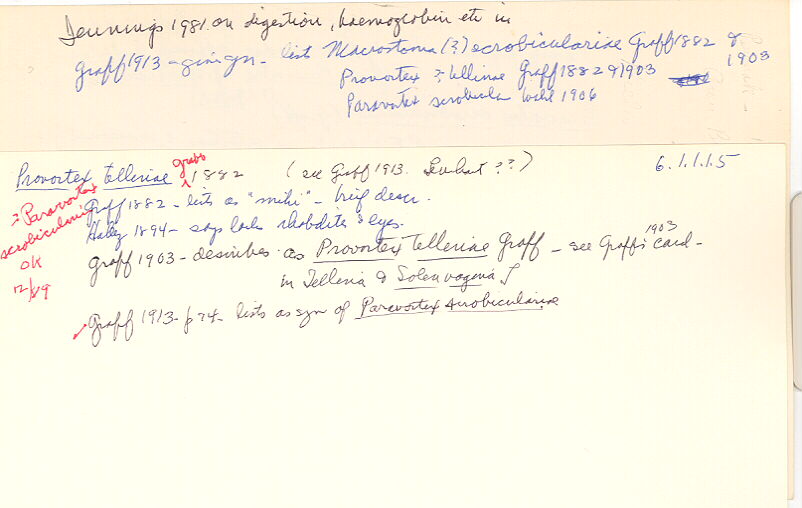 Jennings 1981 on digestion, haemoglobin etc in
Graff 1913 - gives syn - lists Macrostoma (?) scrobiculariae Graff 1882 &
1903
Provortex ? tellinae Graff 1882 & 1903
Paravortex scrobicula Wahl 1906
Provortex tellinae Graff 1882 (see Graff 1913. ??) 6.1.1.1.5
= Paravortex
scrobiculariae
OK
12/89
Graff 1882 - lists as "mihi" - brief descr.
1894 - says lacks rhabdites & eyes.
Graff 1903 - describes as Provortex Tellinae Graff - see Graff's 1903 card -
in Tellina & Solen vagina
Graff 1913 - p 74 - lists as syn of Paravortex scrobiculariae